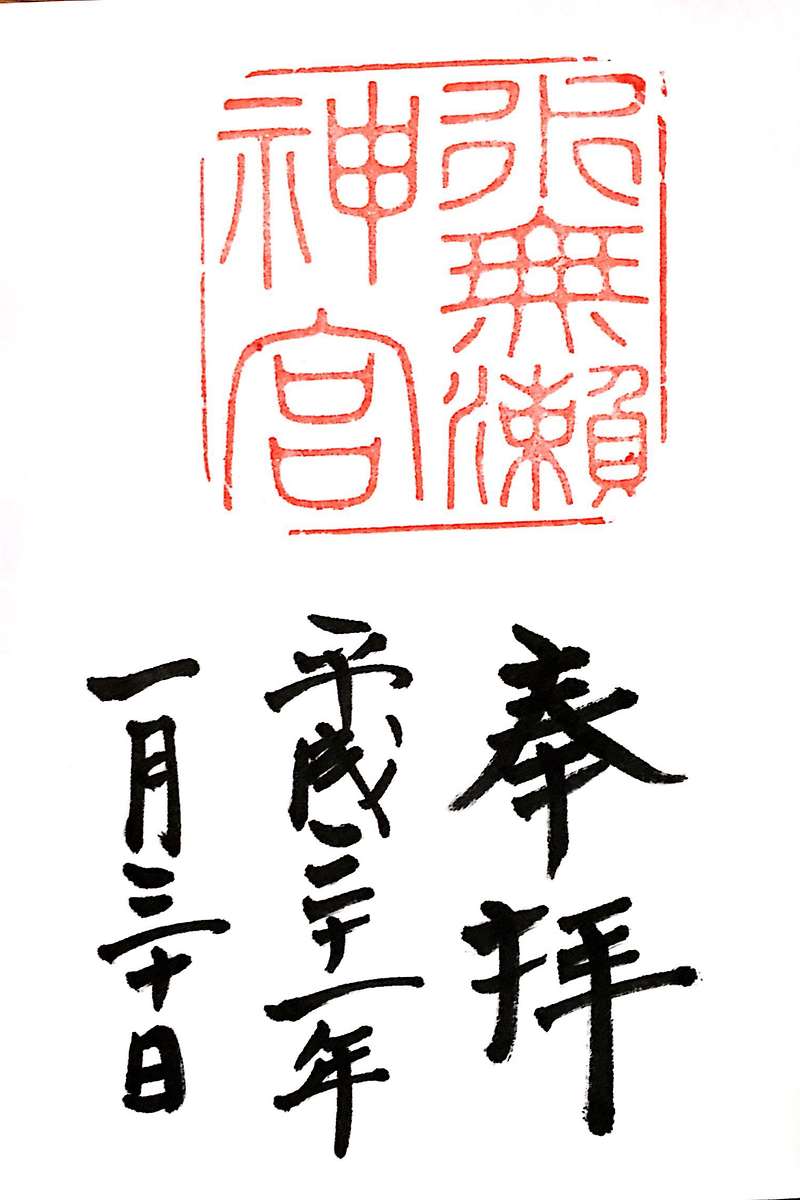 水無瀨
神宮
奉拝
平成三十一年
一月三十日